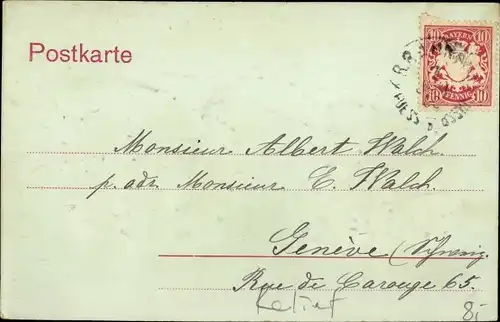 Postkarte
BAYERN
10 10
PFENNIG
Monsieur Albert Walch
p. adr. Monsieur E. Walch.
Genève (Schweiz.
Rue de Carouge 65.
Relief
8.-